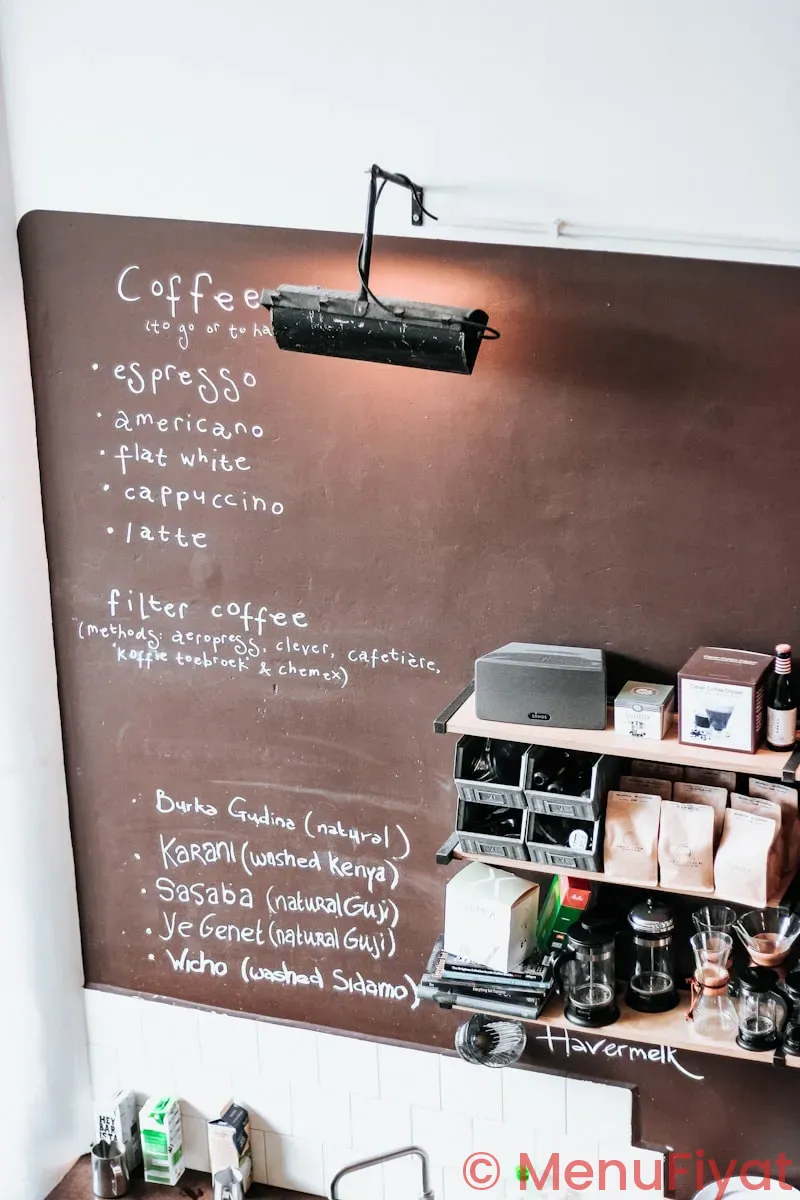 Coffee
(to go or to ha
• espresso
• americano
• flat white
• cappuccino
• latte
filter coffee
(methods: aeropress, clever, cafetière,
'koffie toebroek' & chemex)
SONOS
• Burka Gudina (natural)
• KARANI (washed Kenya)
• Sasaba (natural Guji)
• Ye Genet (natural Guji)
• Wicho (washed Sidamo)
Havermelk
HEY
BAR
ISTA
© MenuFiyat